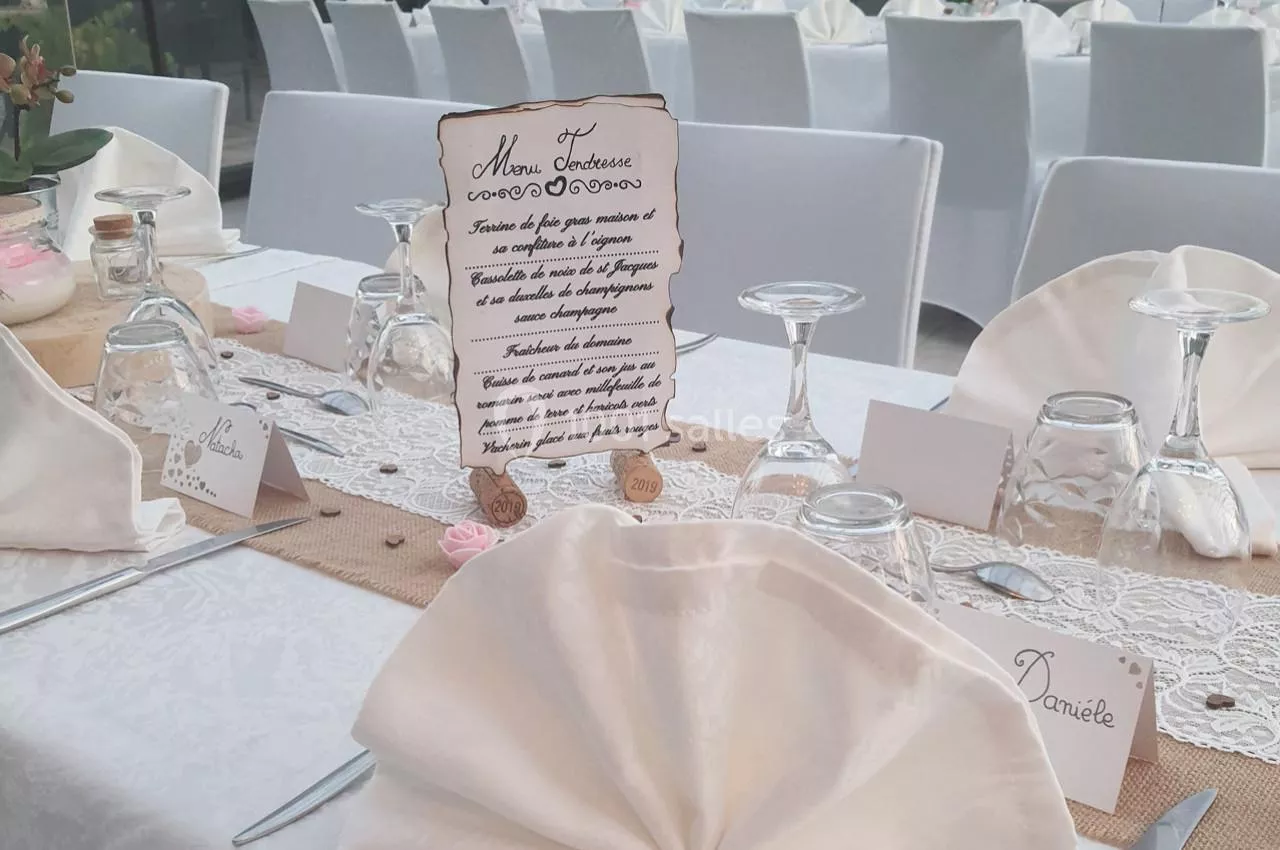 Menu Tendresse
Terrine de foie gras maison et
sa confiture à l'oignon
Cassolette de noix de st Jacques
et sa duxelles de champignons
sauce champagne
Fraîcheur du domaine
Cuisse de canard et son jus au
romarin servi avec millefeuille de
pomme de terre et haricots verts
Vacherin glacé aux fruits rouges
2019
2019
Natacha
Daniéle
salles